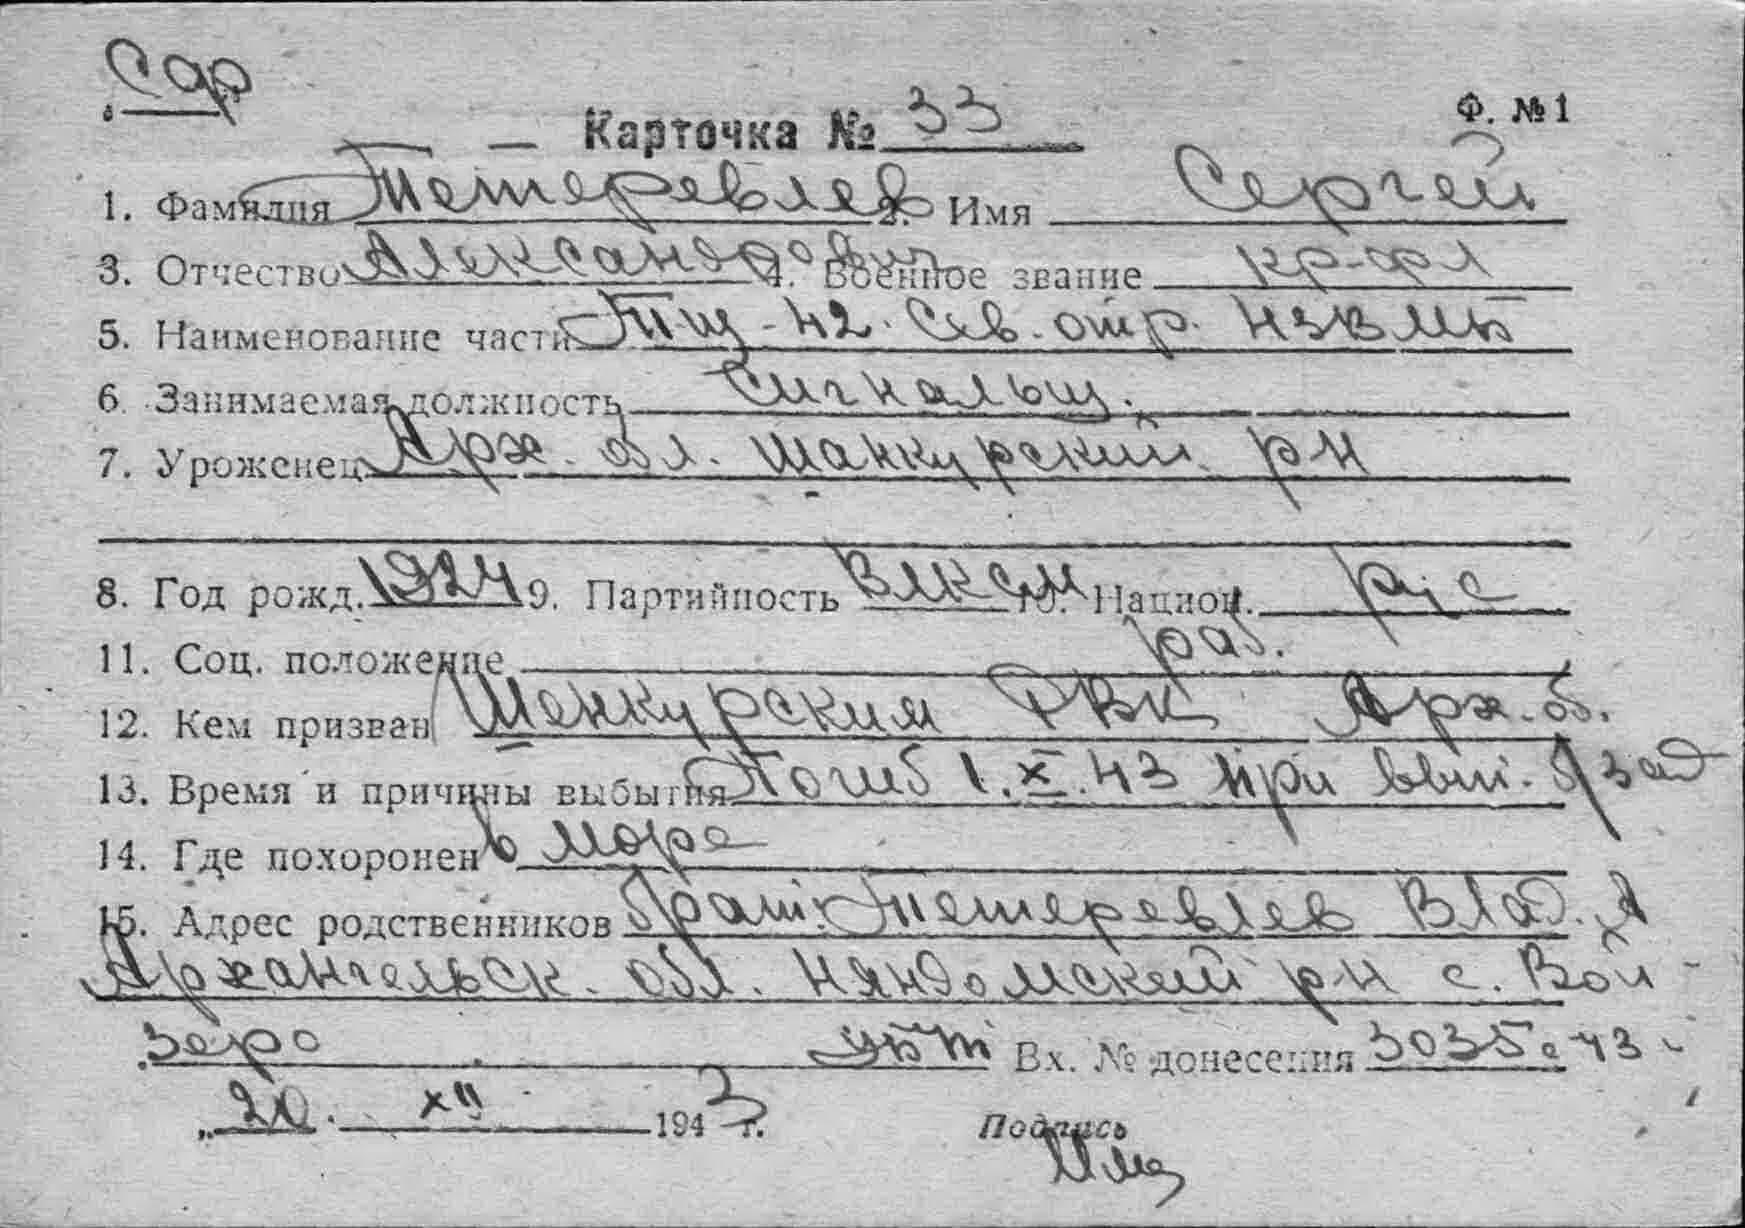 Сар
Карточка № 33
Ф. № 1
1. Фамилия Тетеревлев 2. Имя Сергей
3. Отчество Александрович 4. Военное звание кр-фл
5. Наименование части Тщ-42. Сев. отр. НЗВМБ
6. Занимаемая должность Сигнальщ.
7. Уроженец Арх. обл. Шанкурский рн
8. Год рожд. 1924 9. Партийность ВЛКСМ 10. Национ. рус
11. Соц. положение раб.
12. Кем призван Шенкурским РВК Арх. об.
13. Время и причины выбытия Погиб 1.X.43 при вып. б/зад
14. Где похоронен в море
15. Адрес родственников брат: Тетеревлев Влад. А
Архангельск. обл. Няндомский рн с. Вой-
зеро Вх. № донесения 3035с 43
„20. XII 1943 г.
Подпись